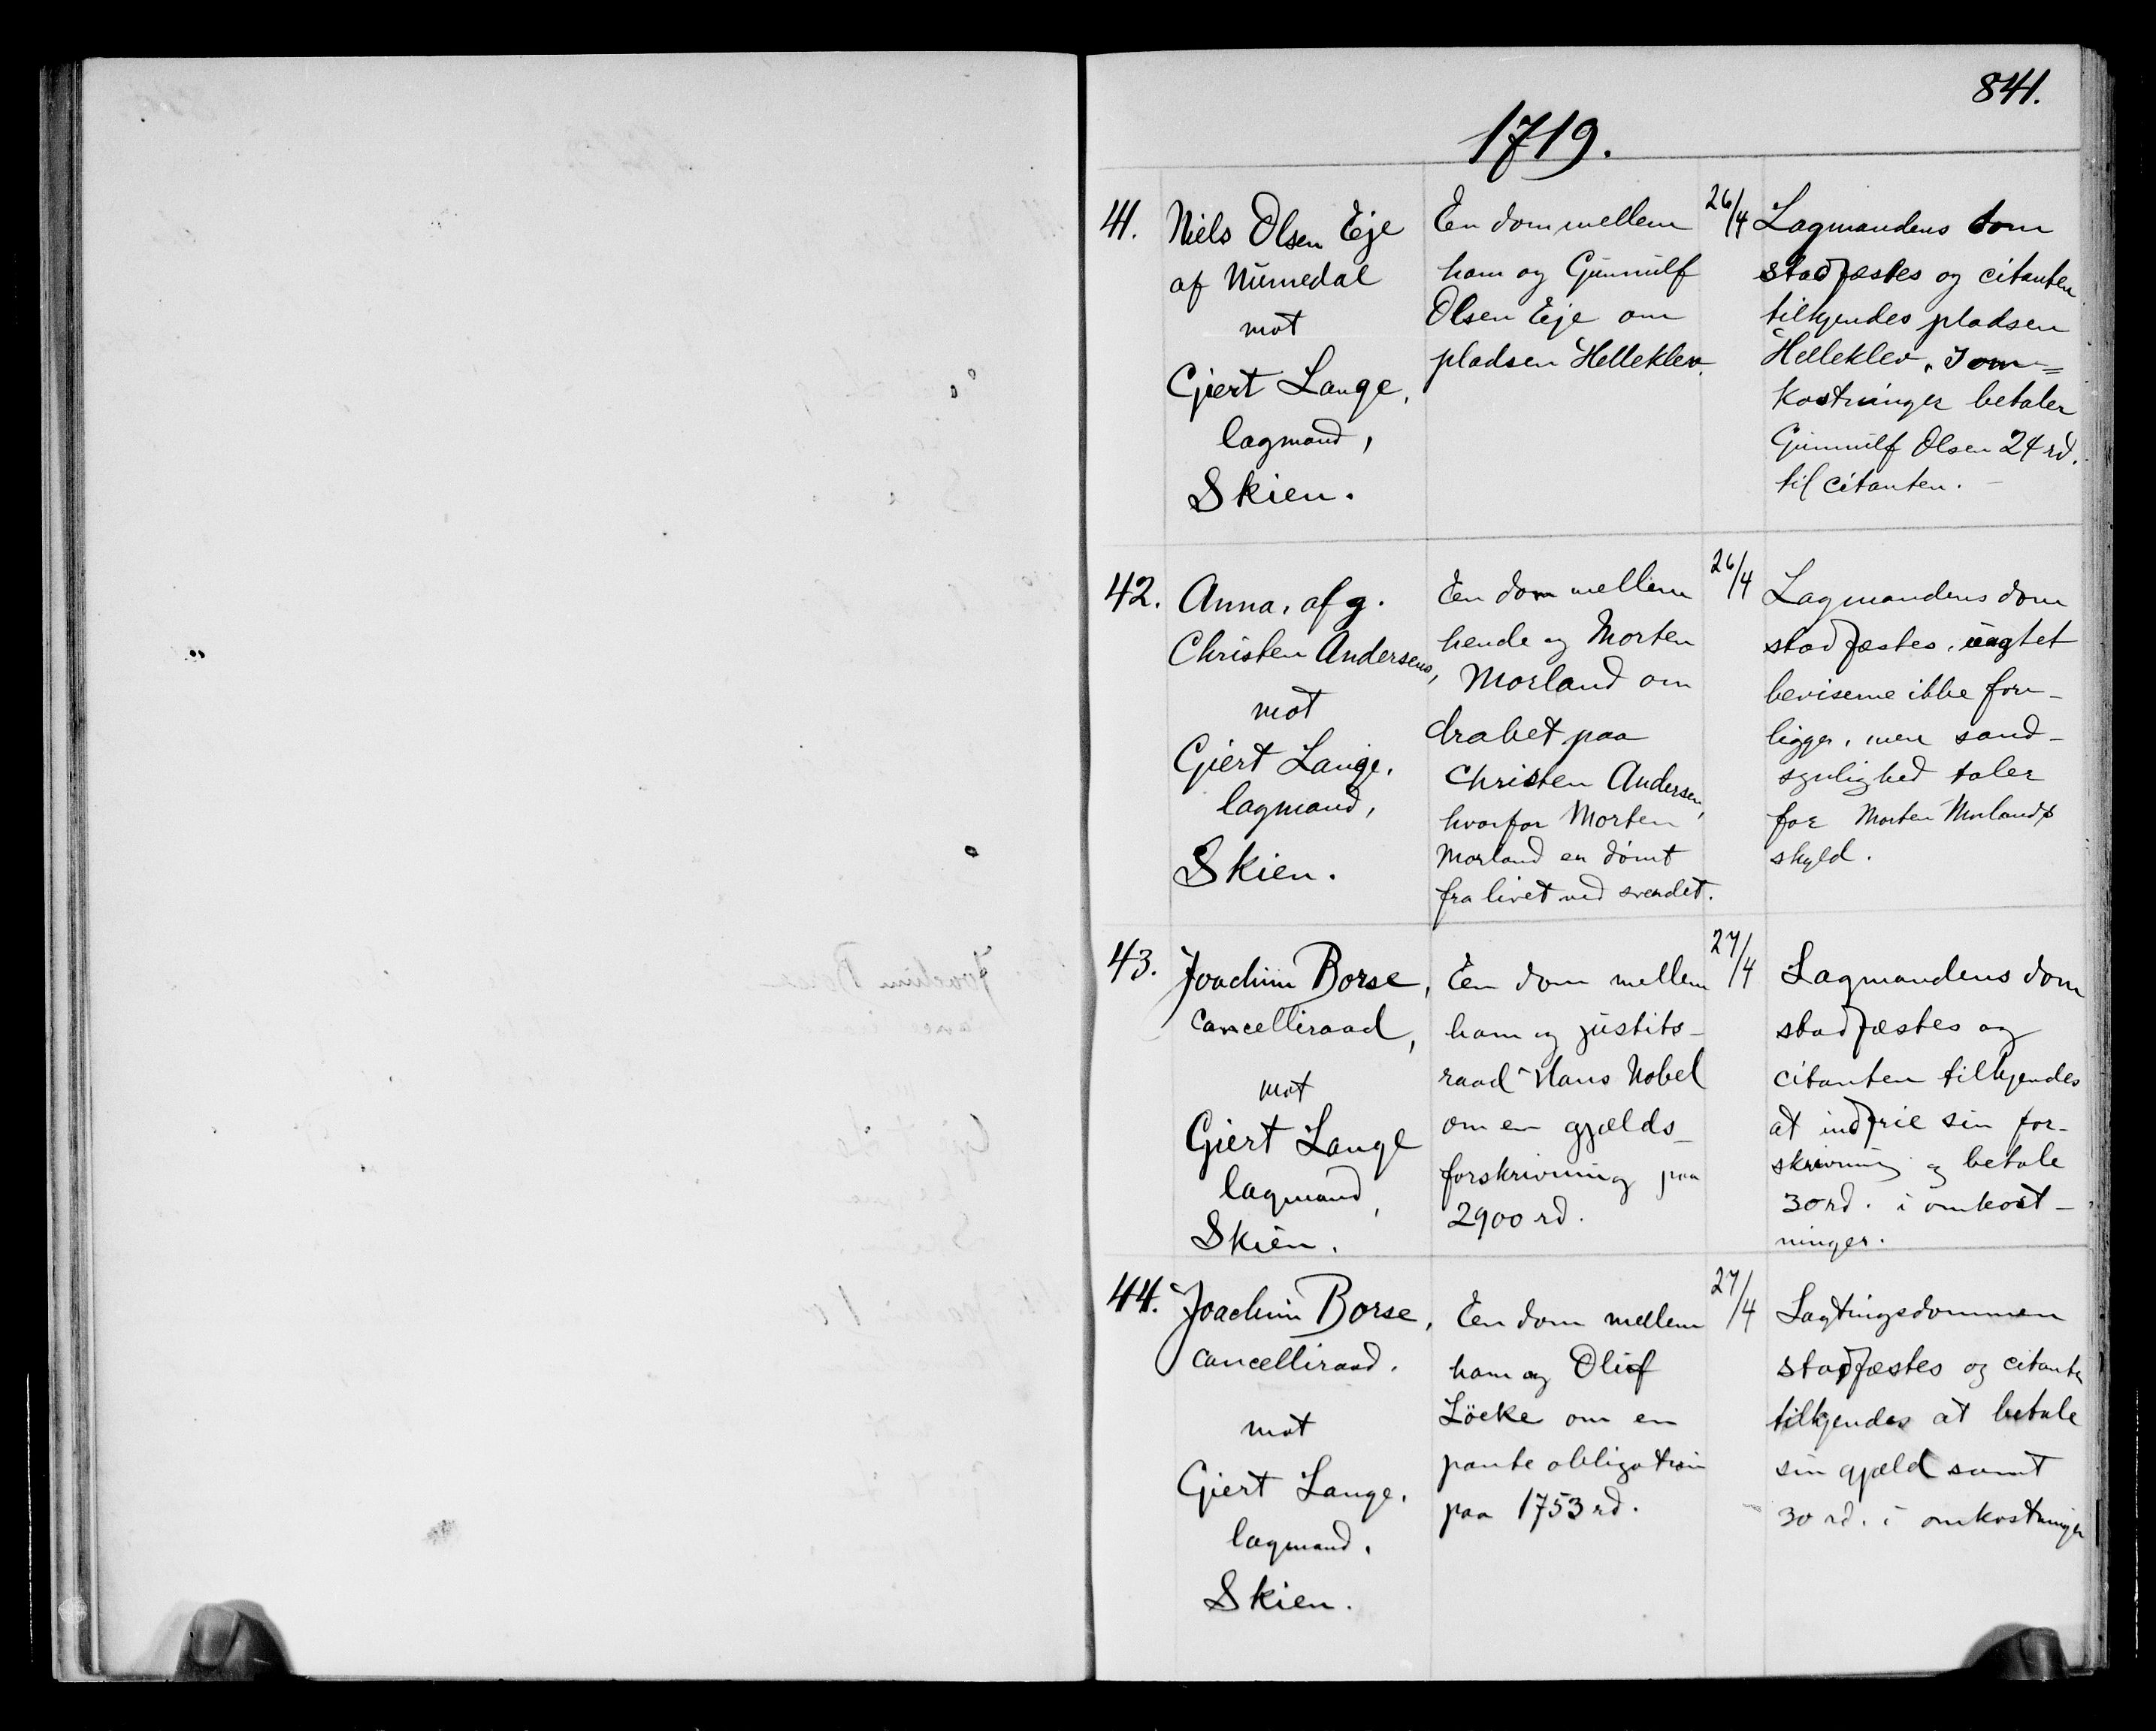 841.
1719.
41. Niels Olsen Eje
af Numedal
mot
Giert Lange,
lagmand,
Skien.
En dom mellem
ham og Gunnulf
Olsen Eje om
pladsen Helleklev.
26/4 Lagmandens dom
stadfæstes og citanten
tilkjendes pladsen
Helleklev. I om=
kostninger betaler
Gunnulf Olsen 24 rd.
til citanten.
42. Anna, afg.
Christen Andersens,
mot
Giert Lange,
lagmand,
Skien.
En dom mellem
hende og Morten
Morland om
drabet paa
Christen Andersen,
hvorfor Morten
Morland er dømt
fra livet ved sverdet.
26/4 Lagmandens dom
stadfæstes, uagtet
beviserne ikke fore-
ligger, men sand-
synlighed taler
for Morten Morlands
skyld.
43. Joachim Borse,
cancelliraad,
mot
Giert Lange
lagmand,
Skien.
En dom mellem
ham og justits-
raad Hans Nobel
om en gjælds-
forskrivning paa
2900 rd.
27/4 Lagmandens dom
stadfæstes og
citanten tilkjendes
at indfrie sin for-
skrivning og betale
30 rd. i omkost-
ninger.
44. Joachim Borse,
cancelliraad.
mot
Giert Lange,
lagmand,
Skien.
En dom mellem
ham og Oluf
Löcke om en
pante obligation
paa 1753 rd.
27/4 Lagtingsdommen
stadfæstes og citanten
tilkjendes at betale
sin gjæld samt
30 rd. i omkostninger